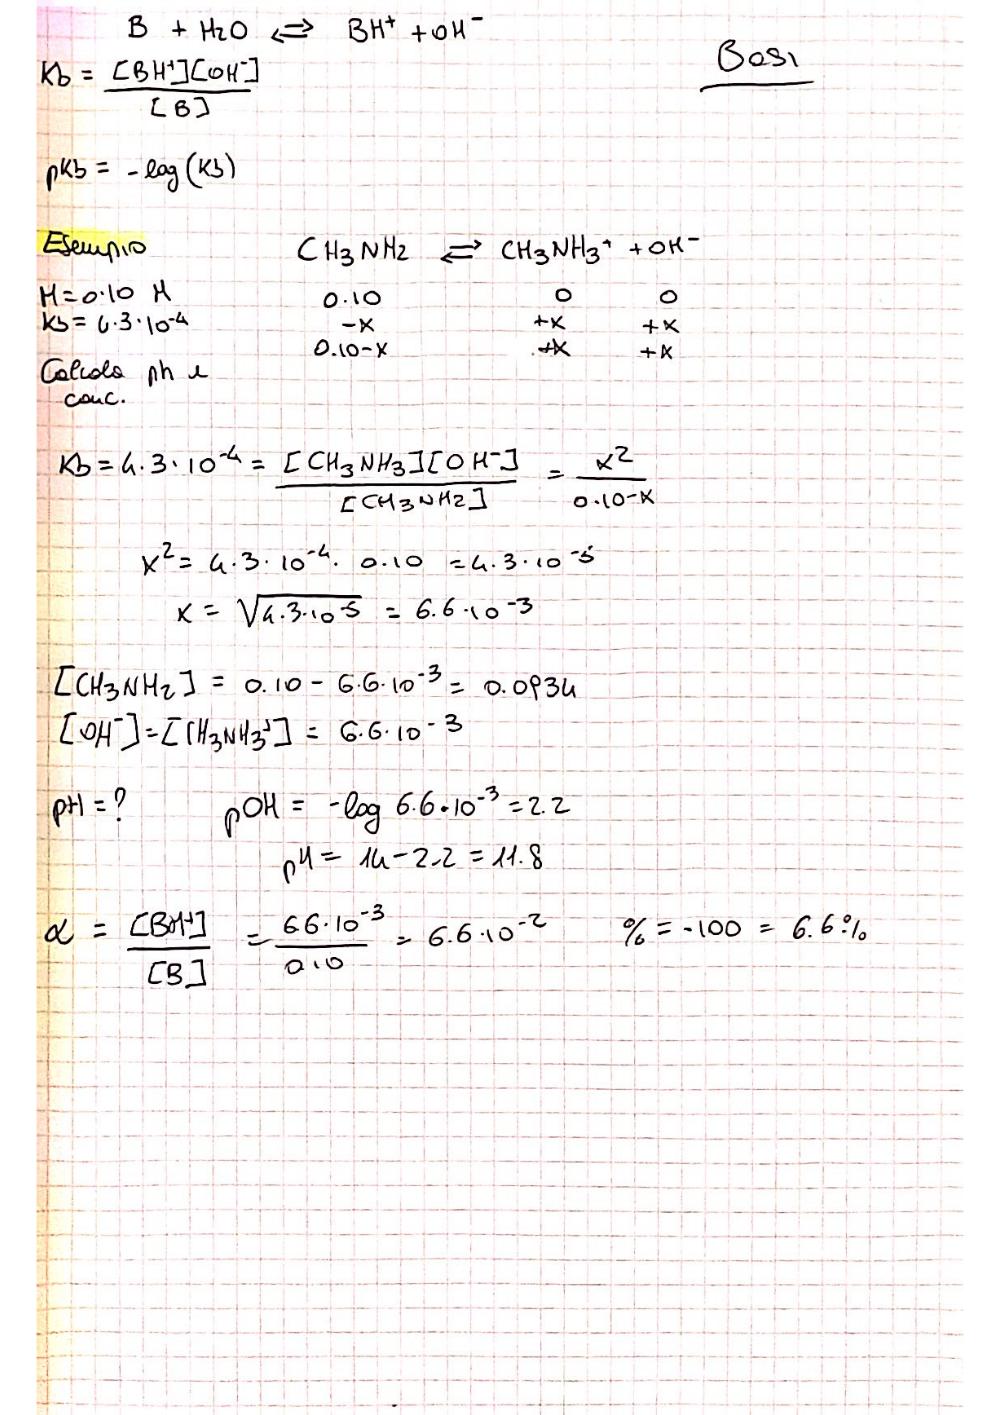 B + H2O ⇌ BH⁺ + OH⁻
Basi
Kb = [BH⁺][OH⁻] / [B]
pKb = -log(Kb)
Esempio CH3NH2 ⇌ CH3NH3⁺ + OH⁻
M=0.10 M 0.10 0 0
Kb= 4.3·10⁻⁴ -x +x +x
0.10-x +x +x
Calcola ph e
conc.
Kb = 4.3·10⁻⁴ = [CH3NH3][OH⁻] / [CH3NH2] = x² / 0.10-x
x² = 4.3·10⁻⁴· 0.10 = 4.3·10⁻⁵
x = √4.3·10⁻⁵ = 6.6·10⁻³
[CH3NH2] = 0.10 - 6.6·10⁻³ = 0.0934
[OH⁻] = [CH3NH3⁺] = 6.6·10⁻³
pH = ? pOH = -log 6.6·10⁻³ = 2.2
pH = 14 - 2.2 = 11.8
α = [BH⁺] / [B] = 6.6·10⁻³ / 0.10 = 6.6·10⁻² % = ·100 = 6.6%